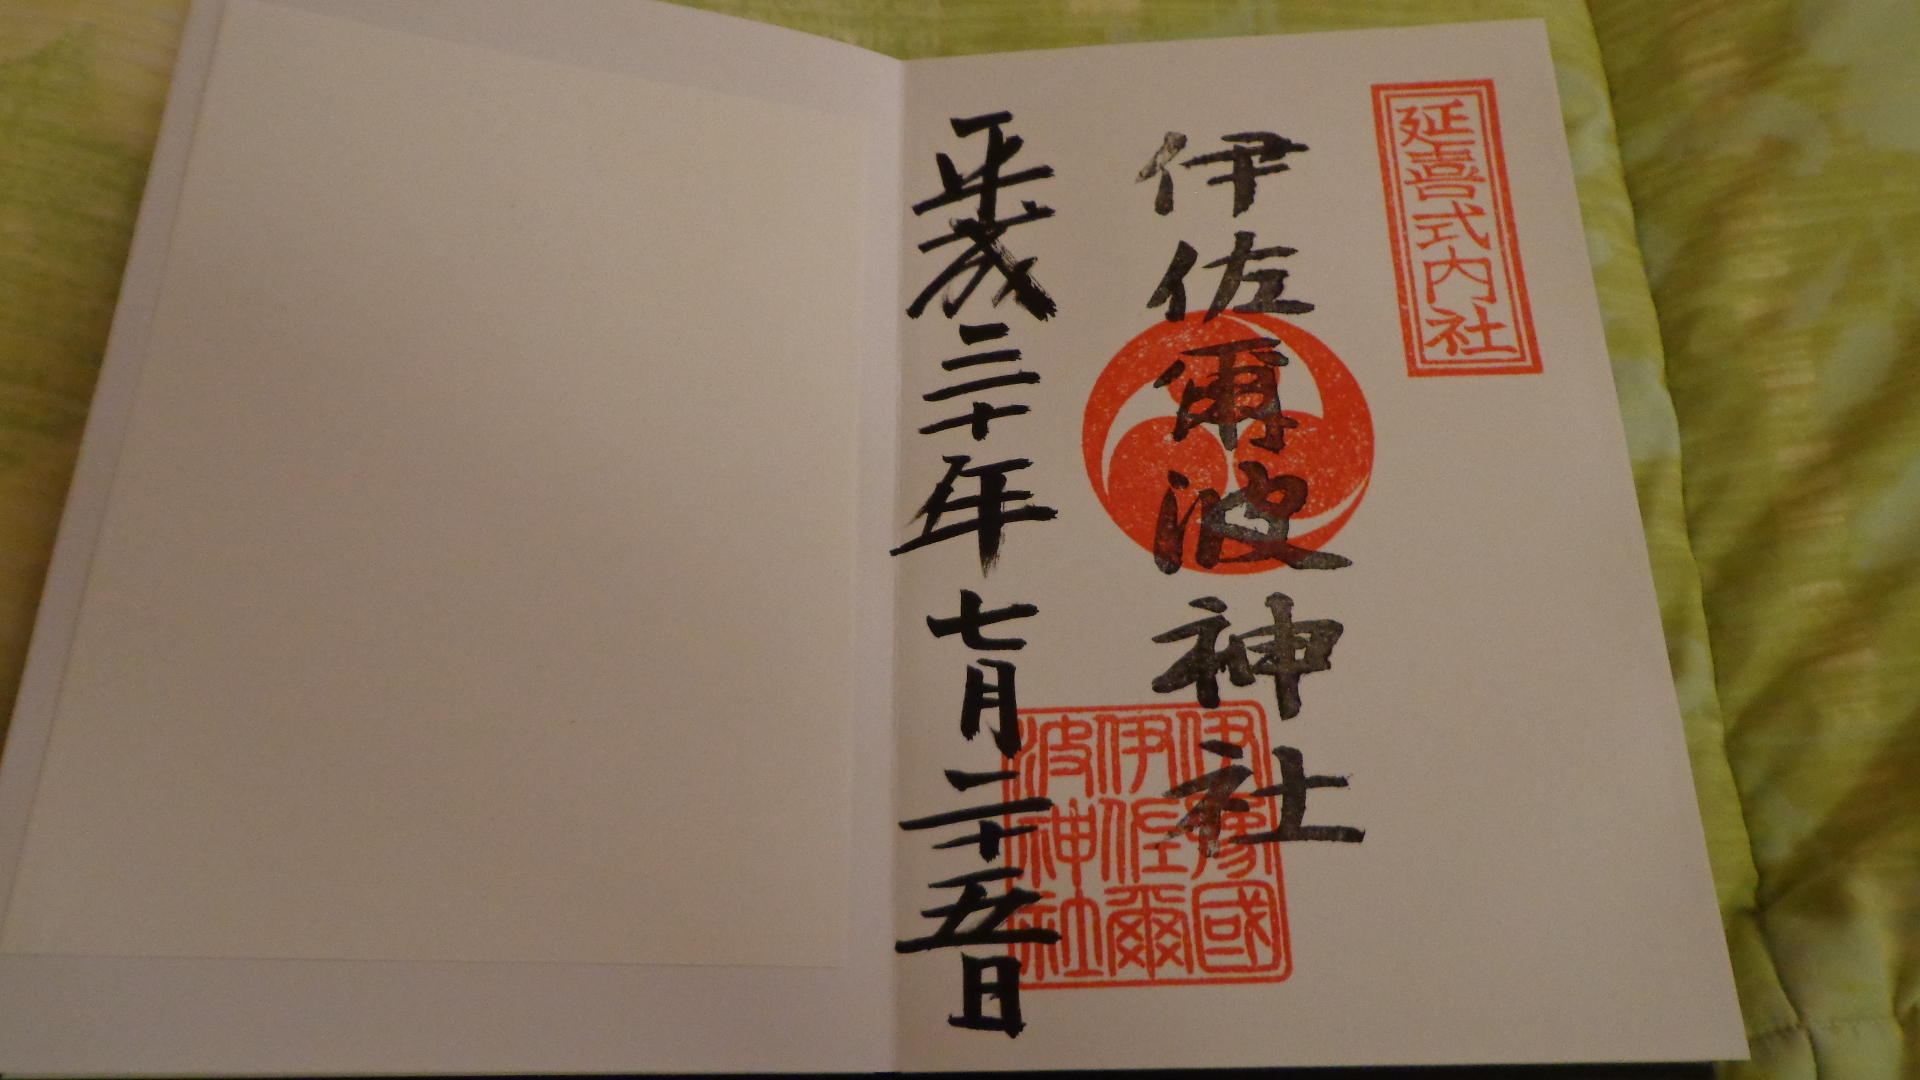 延喜式内社
伊佐爾波神社
伊豫國
伊佐爾
波神社
平成三十年七月二十五日